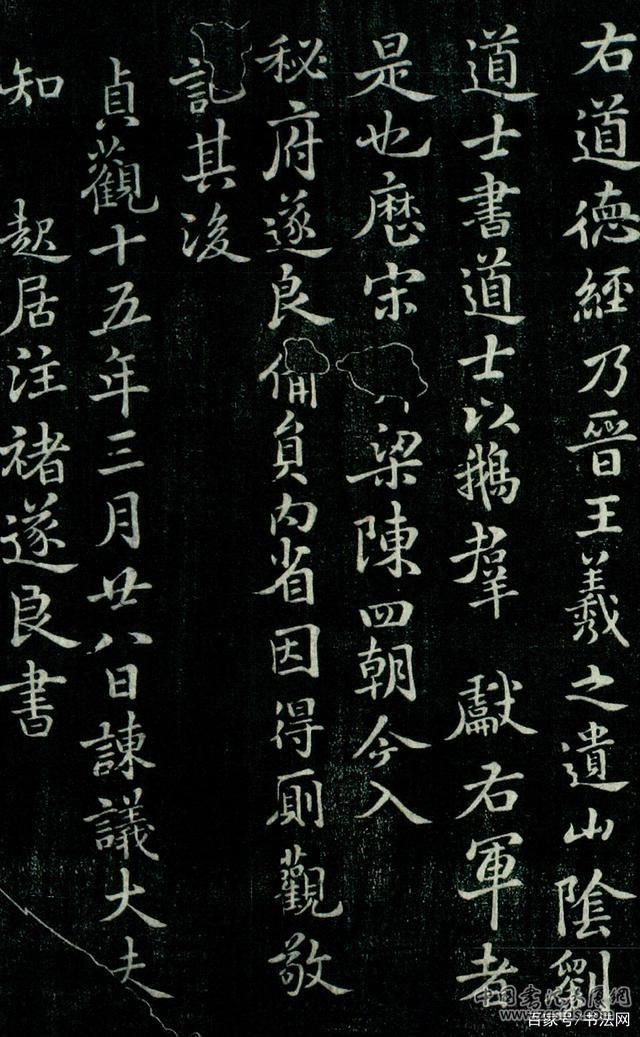 右道德經乃晉王羲之遺山陰劉
道士書道士以鵝群獻右軍者
是也歷宋梁陳四朝今入
秘府遂良備員內省因得厠觀敬
記其後
貞觀十五年三月廿八日諫議大夫
知起居注褚遂良書
百家号/书法网